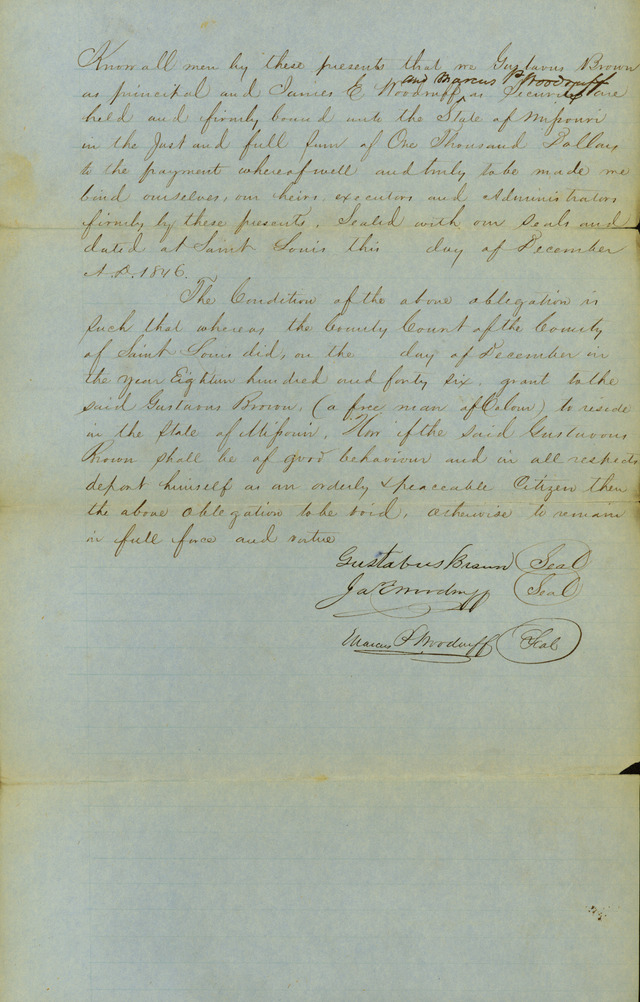 Know all men by these presents that we Gustavus Brown
and Marcus P Woodruff
as principal and James E Woodruff ^ as Securities are
held and firmly bound unto the State of Missouri
in the Just and full Sum of One Thousand Dollars
to the payment whereof well and truly to be made we
bind ourselves, our heirs, executors and Administrators
firmly by these presents, Sealed with our Seals and
dated at Saint Louis this day of December
A.D. 1846.
The Condition of the above obligation is
such that whereas the County Court of the County
of Saint Louis did, on the day of December in
the year Eighteen hundred and forty six, grant to the
said Gustavus Brown, (a free man of Colour) to reside
in the State of Missouri, Now if the said Gustavous
Brown shall be of good behaviour and in all respects
deport himself as an orderly & peaceable Citizen then
the above obligation to be void, otherwise to remain
in full force and virtue
Gustabus Braun Seal
Ja E Woodruff Seal
Marcus P Woodruff Seal